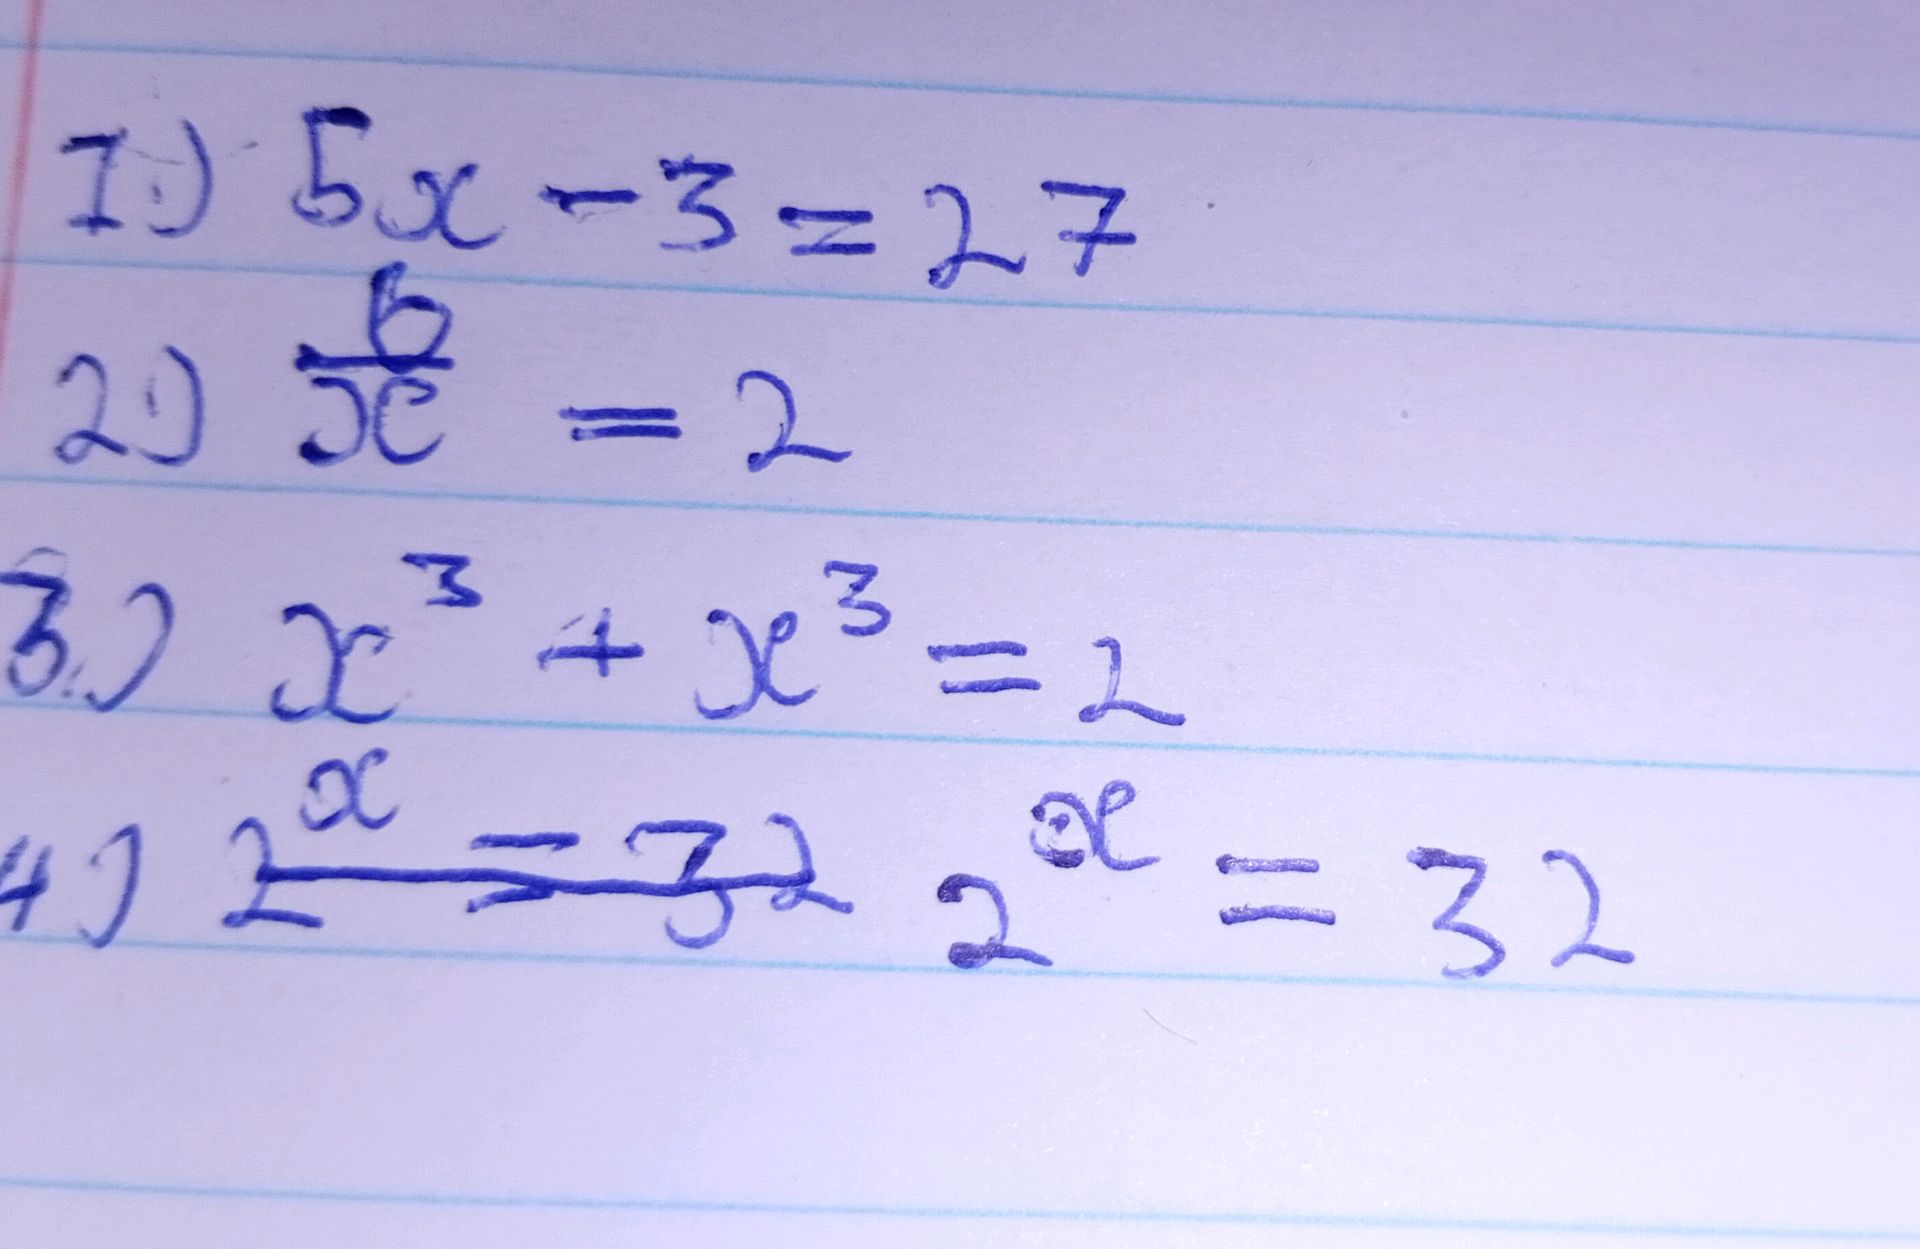 1.) 5x - 3 = 27
2.) 6/x = 2
3.) x³ + x³ = 2
4.) ~~2ˣ = 32~~ 2ˣ = 32